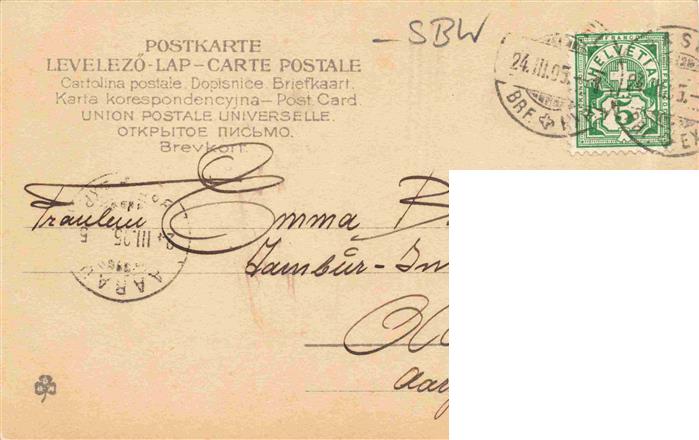 SBW
POSTKARTE
LEVELEZŐ-LAP-CARTE POSTALE
Cartolina postale. Dopisnice. Briefkaart.
Karta korespondencyjna—Post Card.
UNION POSTALE UNIVERSELLE.
ОТКРЫТОЕ ПИСЬМО.
Brevkort.
FRANCO
HELVETIA
5
24.III.05.
BRF. EXP.
Fräulein Emma
Tambur-
AARAU
24 III.05